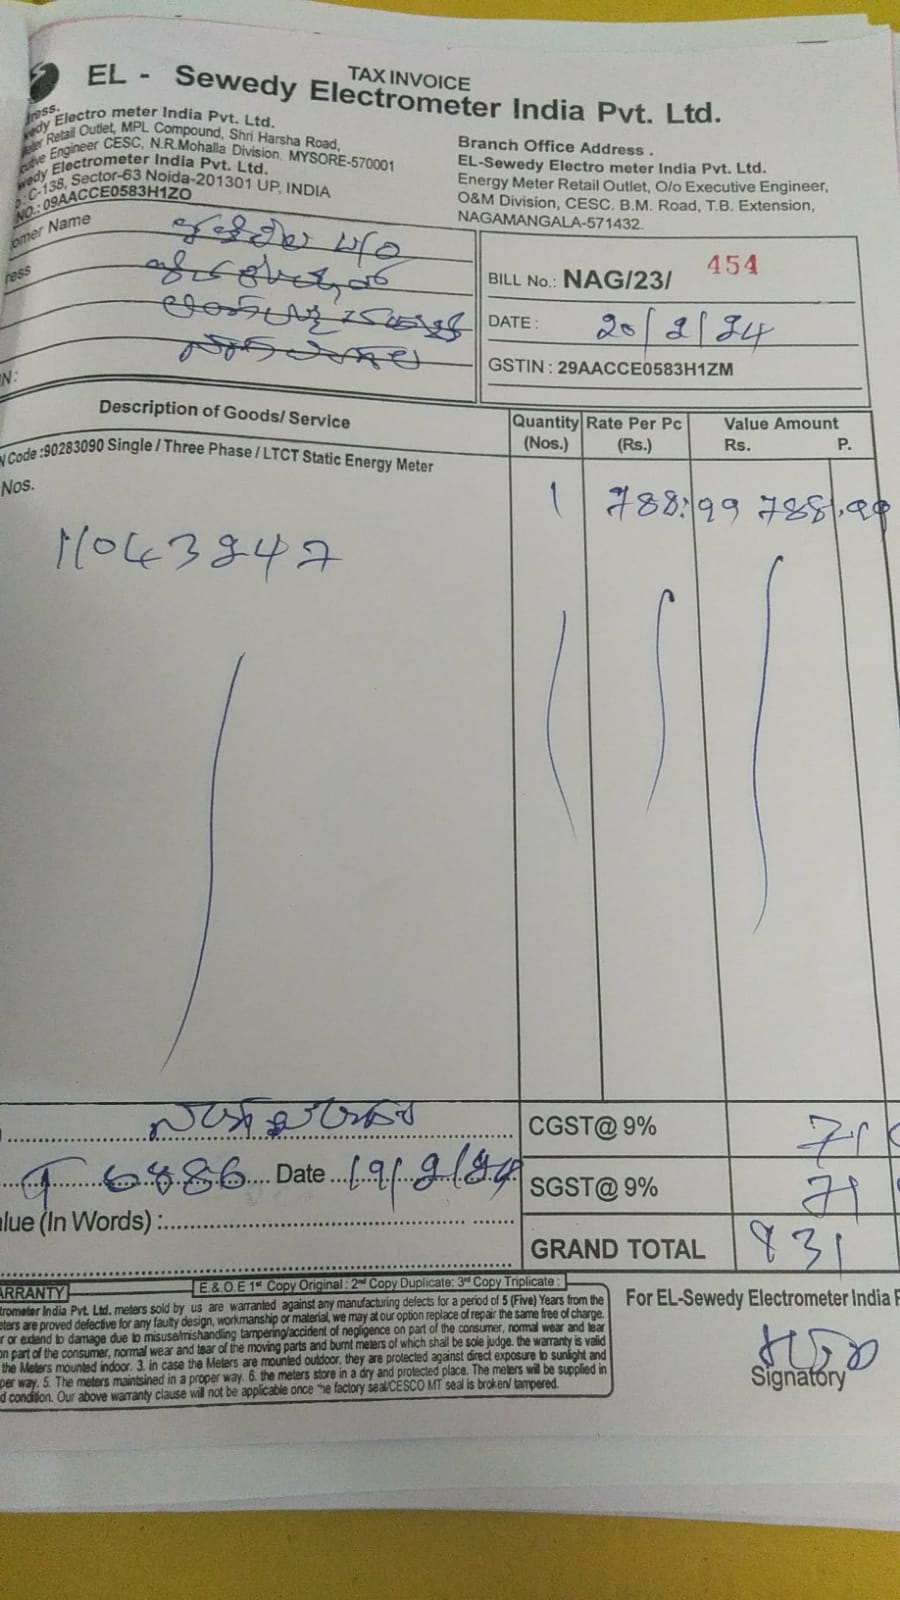 TAX INVOICE
EL - Sewedy Electrometer India Pvt. Ltd.
Electro meter India Pvt. Ltd.
Retail Outlet, MPL Compound, Shri Harsha Road,
Engineer CESC, N.R.Mohalla Division. MYSORE-570001
Electrometer India Pvt. Ltd.
C-138, Sector-63 Noida-201301 UP, INDIA
NO.: 09AACCE0583H1ZO
Branch Office Address .
EL-Sewedy Electro meter India Pvt. Ltd.
Energy Meter Retail Outlet, O/o Executive Engineer,
O&M Division, CESC. B.M. Road, T.B. Extension,
NAGAMANGALA-571432.
omer Name
ress
N:
BILL No.: NAG/23/ 454
DATE : 20/2/24
GSTIN : 29AACCE0583H1ZM
Description of Goods/ Service
Quantity (Nos.)
Rate Per Pc (Rs.)
Value Amount
Rs. P.
N Code :90283090 Single / Three Phase / LTCT Static Energy Meter
Nos.
1 788.99 788.99
11043247
CGST@ 9% 71
6886 Date 19/2/24
SGST@ 9% 71
alue (In Words) :
GRAND TOTAL 831
E & O.E 1st Copy Original : 2nd Copy Duplicate: 3rd Copy Triplicate :
ARRANTY
trometer India Pvt. Ltd. meters sold by us are warranted against any manufacturing defects for a period of 5 (Five) Years from the
eters are proved defective for any faulty design, workmanship or material, we may at our option replace of repair the same free of charge.
r or extend to damage due to misuse/mishandling tampering/accident of negligence on part of the consumer, normal wear and tear
on part of the consumer, normal wear and tear of the moving parts and burnt meters of which shall be sole judge. the warranty is valid
the Meters mounted indoor. 3. in case the Meters are mounted outdoor, they are protected against direct exposure to sunlight and
per way. 5. The meters maintsined in a proper way. 6. the meters store in a dry and protected place. The meters will be supplied in
d condition. Our above warranty clause will not be applicable once the factory seal/CESCO MT seal is broken/ tampered.
For EL-Sewedy Electrometer India P
Signatory